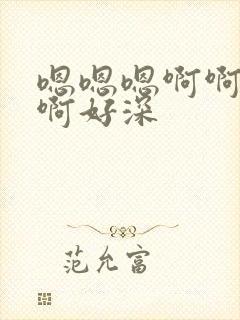 嗯嗯嗯啊啊
啊好深
范允富